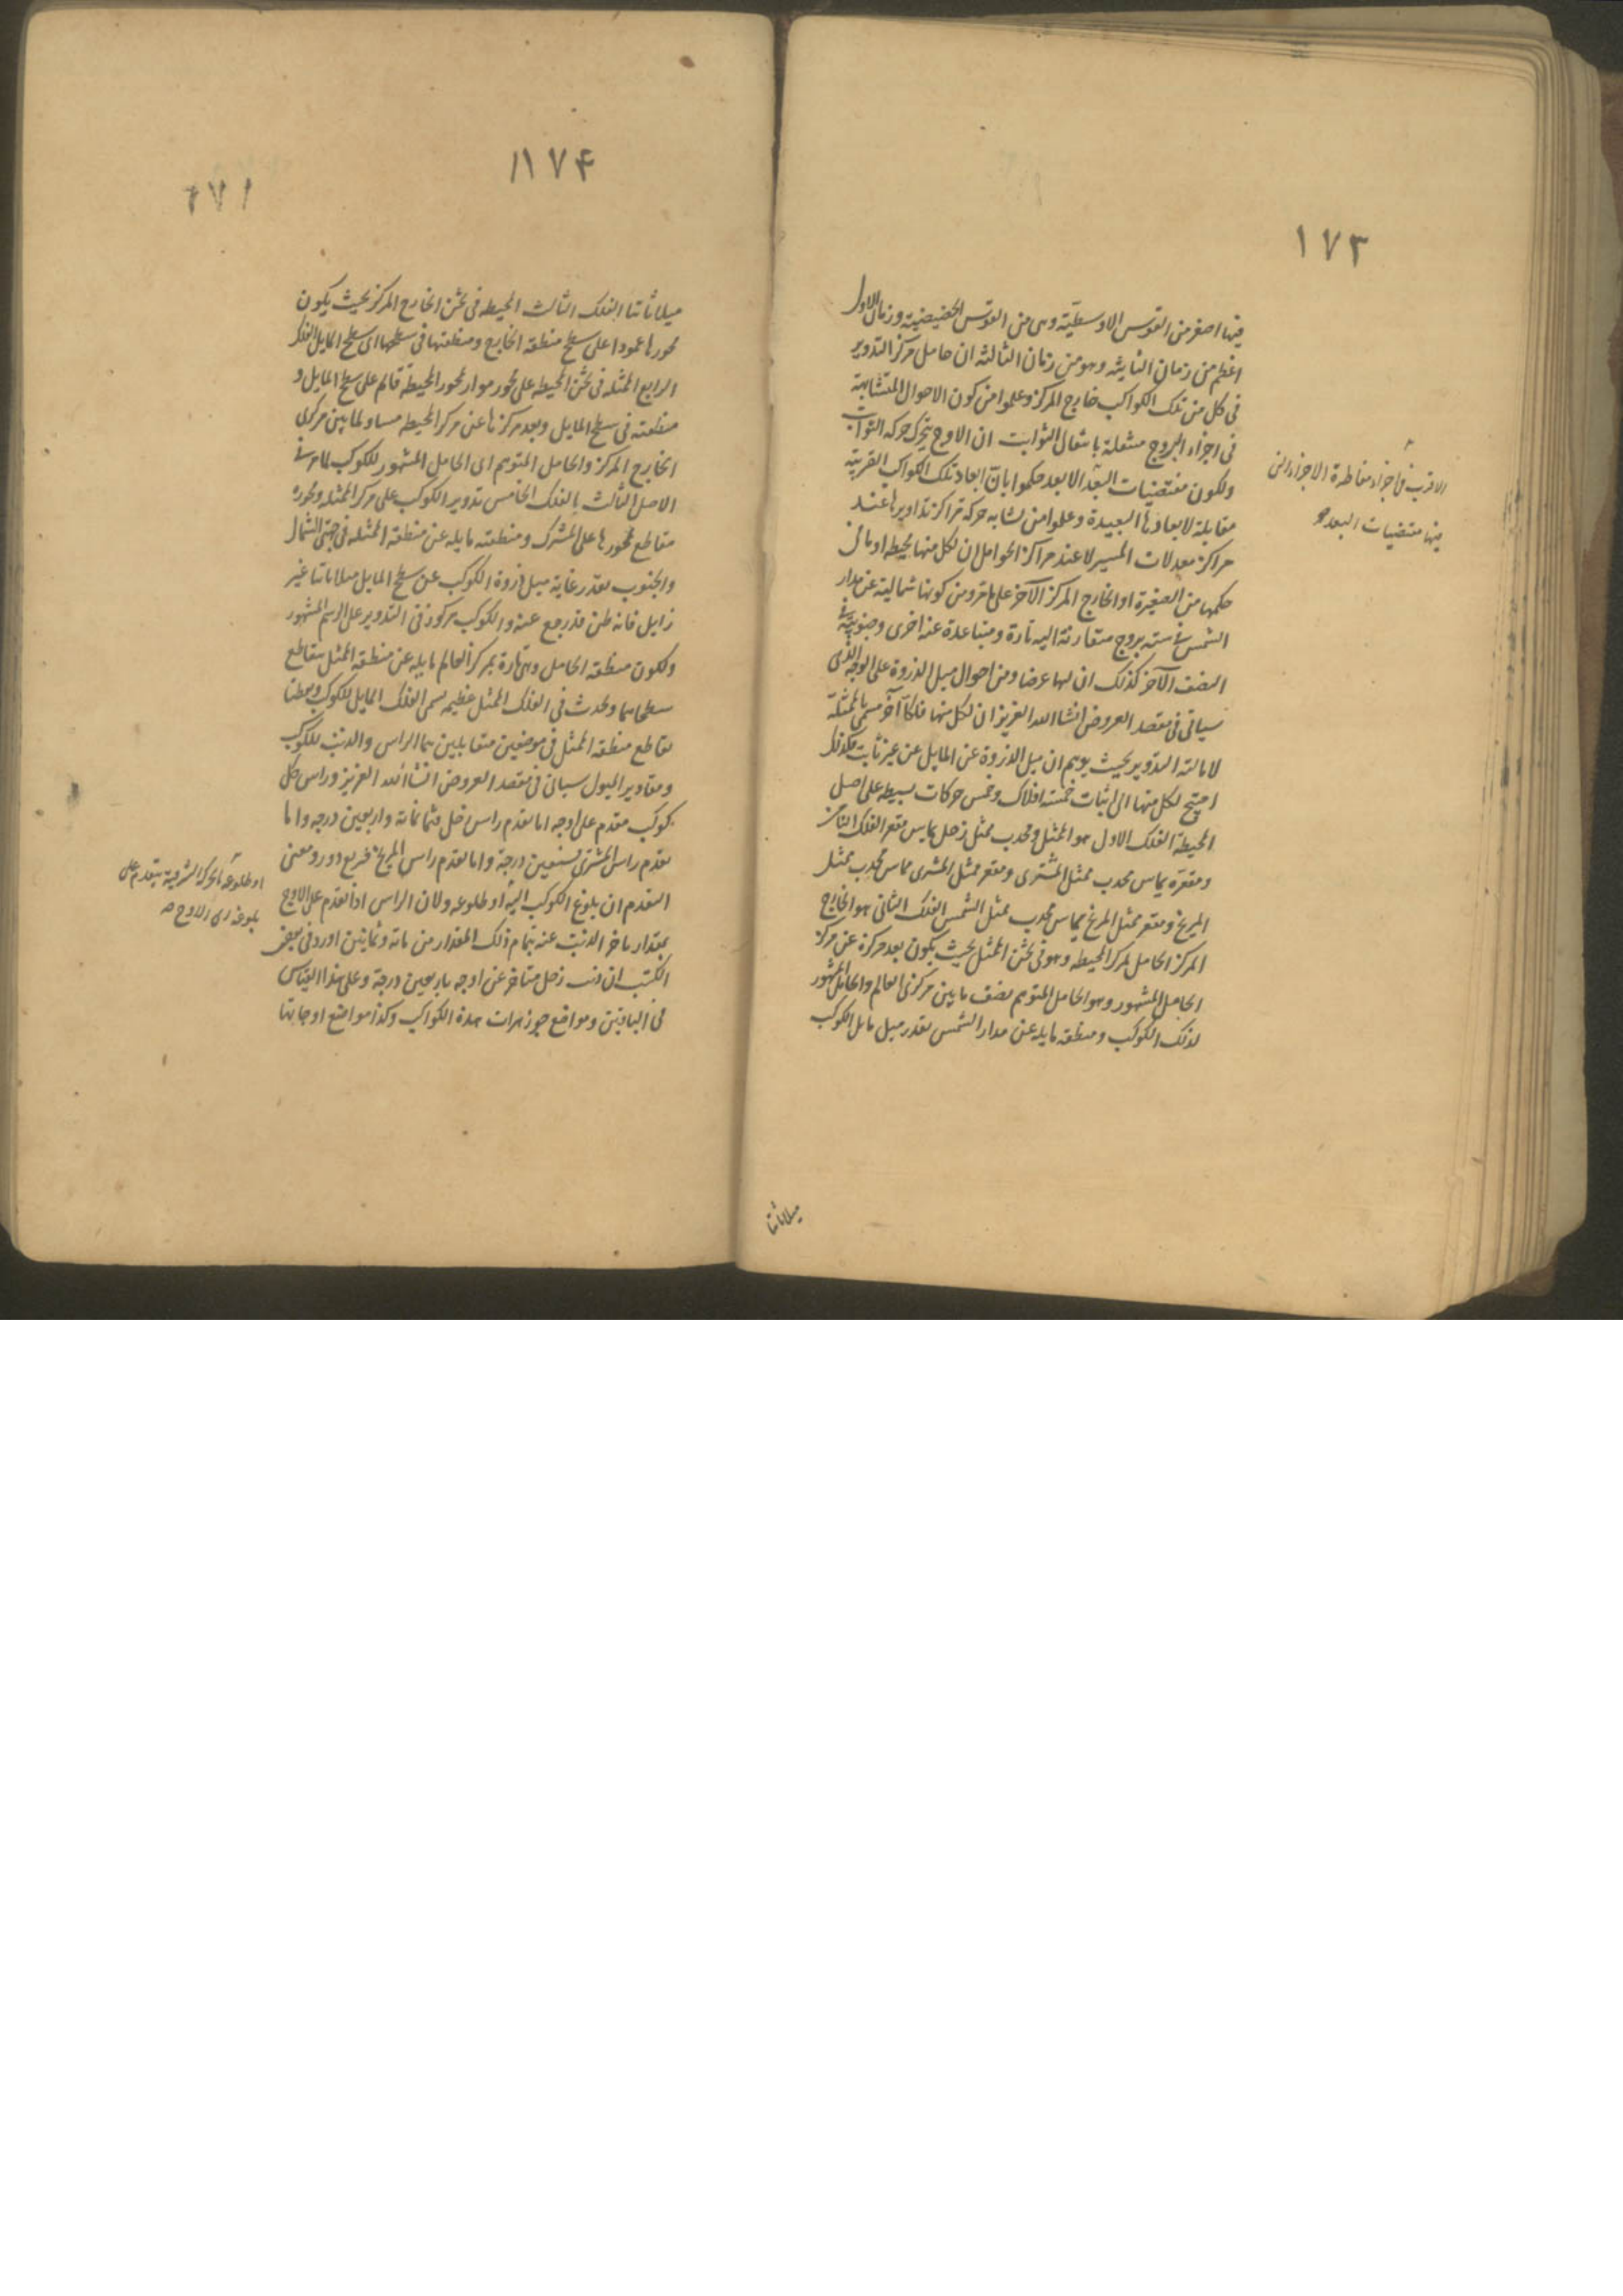 ١٧٣
فيها اصغر من القوس الاوسطية وهى من القوس الحضيضية وزمان الاول
اعظم من زمان الثانية وهو من زمان الثالثه ان حامل مركز التدوير
فى كل من تلك الكواكب خارج المركز وعلموا من كون الاحوال المتشابهة
فى اجزاء البروج منتقلة بانتقال الثوابت ان الاوج يتحرك حركه الثوابت
ولكون مقتضيات البعد الابعد حكموا بان ابعاد تلك الكواكب القريبة
مقابلة لابعادها البعيدة وعلموا من تشابه حركة مراكز تداويرها عند
مراكز معدلات المسير لا عند مراكز الحوامل ان لكل منها محيطه او ما فى
حكمها من الصغيرة او الخارج المركز الآخر على ما مر ومن كونها شمالية عن مدار
الشمس فى ستة بروج متقاربة اليه تارة ومتباعدة عنه اخرى وجنوبية فى
النصف الآخر كذلك ان لها عرضا ومن احوال ميل الذروة على الوجه الذى
سياتى فى مقصد العروض انشا الله العزيز ان لكل منها فلكا آخر مسمى بالممثلة
لامالته التدوير بحيث يوهم ان ميل الذروة عن المايل عن غير ثابت فلذلك
احتيج لكل منها الى اثبات خمسة افلاك وخمس حركات بسيطه على اصل
المحيطة الفلك الاول هو الممثل ومحدب ممثل زحل يماس مقعر الفلك الثامن
ومقعره يماس محدب ممثل المشترى ومقعر ممثل المشترى يماس محدب ممثل
المريخ ومقعر ممثل المريخ يماس محدب ممثل الشمس الفلك الثانى هو الخارج
المركز الحامل لمركز المحيطه وهو فى ثخن الممثل بحيث يكون بعد مركزه عن مركز
الحامل المشهور وهو الحامل المتوهم نصف ما بين مركزى العالم والحامل المشهور
لذلك الكوكب ومنطقه مايله عن مدار الشمس بقدر ميل مايل الكوكب
الاقرب فى اجزاء مقاطرة الاجزاء التى
فيها مقتضيات البعد
ميلا ثابتا
١١٧۴
١٧١
ميلا ثابتا الفلك الثالث المحيطه فى ثخن الخارج المركز بحيث يكون
محورها عمودا على سطح منطقه الخارج ومنطقتها فى سطحها اى سطح المايل الفلك
الرابع الممثله فى ثخن المحيطه على محور مواز لمحور المحيطة قائم على سطح المايل و
منطقته فى سطح المايل وبعد مركزها عن مركز المحيطه مساو لما بين مركزى
الخارج المركز والحامل المتوهم اى الحامل المشهور للكوكب لما مر فى
الاصل الثالث الفلك الخامس تدوير الكوكب على مركز الممثله ومحوره
مقاطع لمحورها على المشترك ومنطقته مايله عن منطقة الممثله فى جهتى الشمال
والجنوب بقدر غاية ميل ذروة الكوكب عن سطح المايل ميلا ثابتا غير
زايل فانه ظن قد رجع عنه والكوكب مركوز فى التدوير على الرسم المشهور
ولكون منطقه الحامل وهى مارة بمركز العالم مايله عن منطقه الممثل يتقاطع
سطحاهما ويحدث فى الفلك الممثل عظيمه تسمى الفلك المايل للكوكب ونقطتا
تقاطع منطقه الممثل فى موضعين متقابلين هما الراس والذنب للكوكب
ومقادير الميول سياتى فى مقصد العروض انشا الله العزيز وراس كل
كوكب مقدم على اوجه اما تقدم راس زحل فثمانمائة واربعين درجه واما
تقدم راس المشترى فسبعين درجة واما تقدم راس المريخ فربع دور ومعنى
التقدم ان بلوغ الكوكب اليه او طلوعه ولان الراس اذا تقدم على الاوج
بمقدار تاخر الذنب عنه بتمام ذلك المقدار من مائة وثمانين اورد فى بعض
الكتب ان ذنب زحل متاخر عن اوجه باربعين درجة وعلى هذا القياس
فى الباقيين ومواضع جوزهرات هذه الكواكب وكذا مواضع اوجاتها
او طلوعه بالحركة الشرقية يتقدم على
بلوغه الى الاوج صح